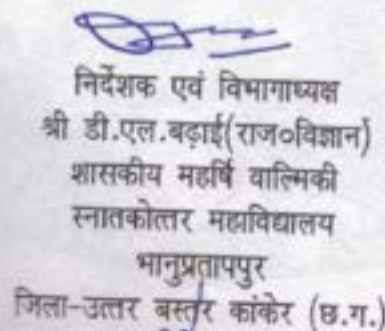 निर्देशक एवं विभागाध्यक्ष
श्री डी.एल.बढ़ाई(राज०विज्ञान)
शासकीय महर्षि वाल्मिकी
स्नातकोत्तर महाविद्यालय
भानुप्रतापपुर
जिला-उत्तर बस्तर कांकेर (छ.ग.)